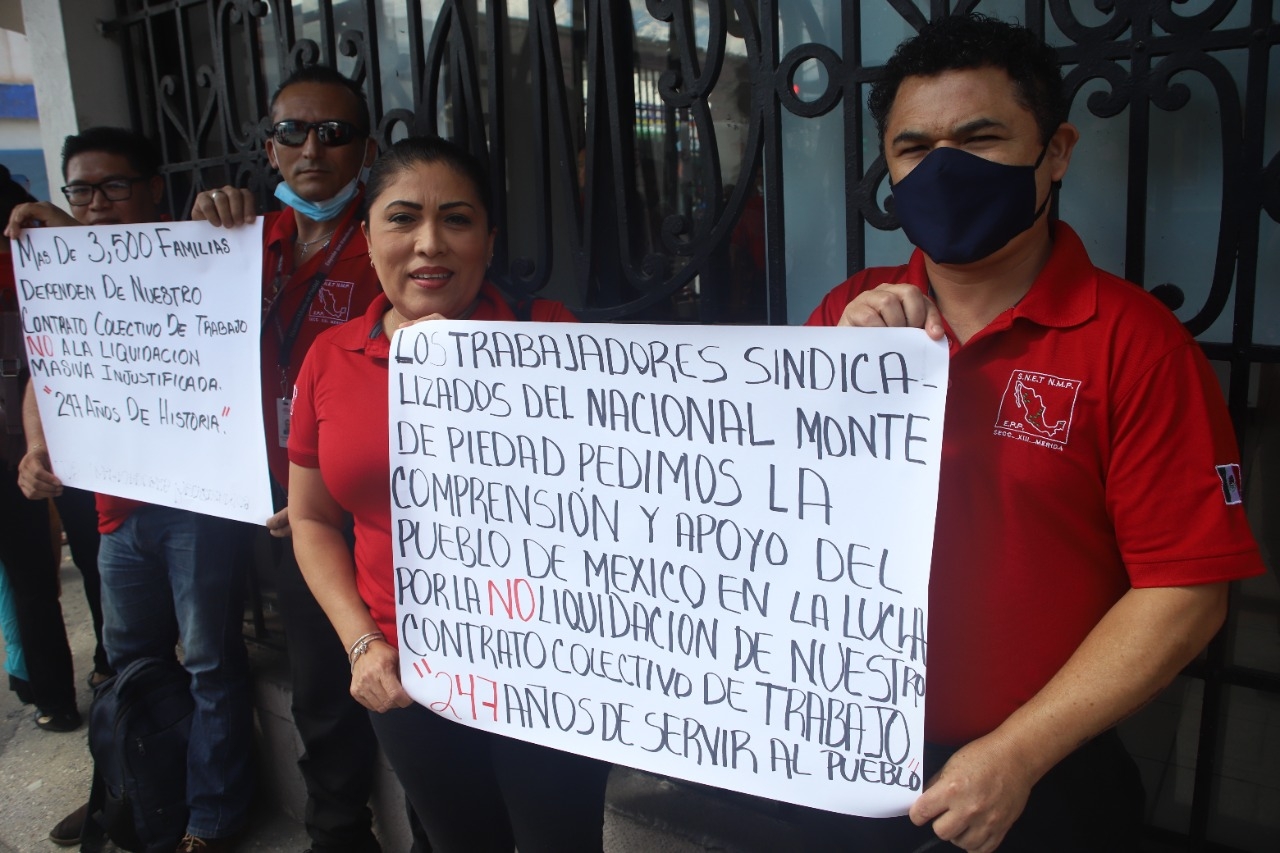 MAS DE 3,500 FAMILIAS
DEFENDEN DE NUESTRO
CONTRATO COLECTIVO DE TRABAJO
NO A LA LIQUIDACION
MASIVA INJUSTIFICADA.
"247 AÑOS DE HISTORIA".
LOS TRABAJADORES SINDICA-
LIZADOS DEL NACIONAL MONTE
DE PIEDAD PEDIMOS LA
COMPRENSIÓN Y APOYO DEL
PUEBLO DE MEXICO EN LA LUCHA
POR LA NO LIQUIDACION DE NUESTRO
CONTRATO COLECTIVO DE TRABAJO
"247 AÑOS DE SERVIR AL PUEBLO"
S.N.E.T N.M.P.
E.P.P.
SECC. XIII MERIDA